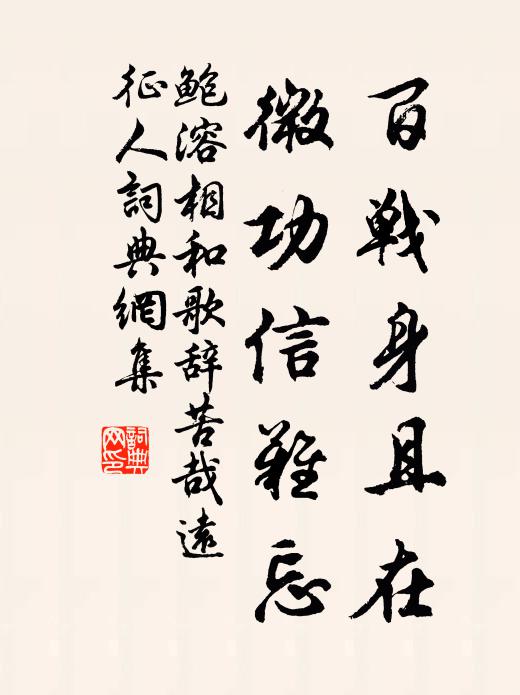 百戰身且在
微功信難忘
鮑溶相和歌辞苦哉遠
征人詞典網集
詞典
网印